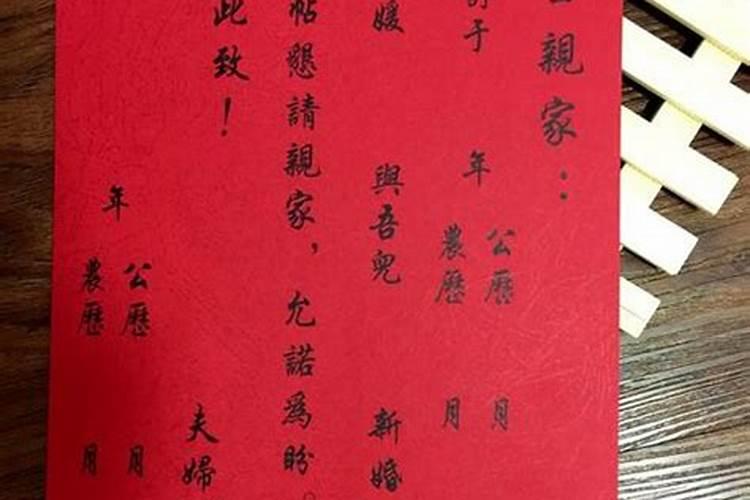 親家：
于 年 公曆 月
農曆 月
媛 與吾兒 新婚
帖懇請親家，允諾為盼。
此致！
夫婦
年 公曆 月
農曆 月